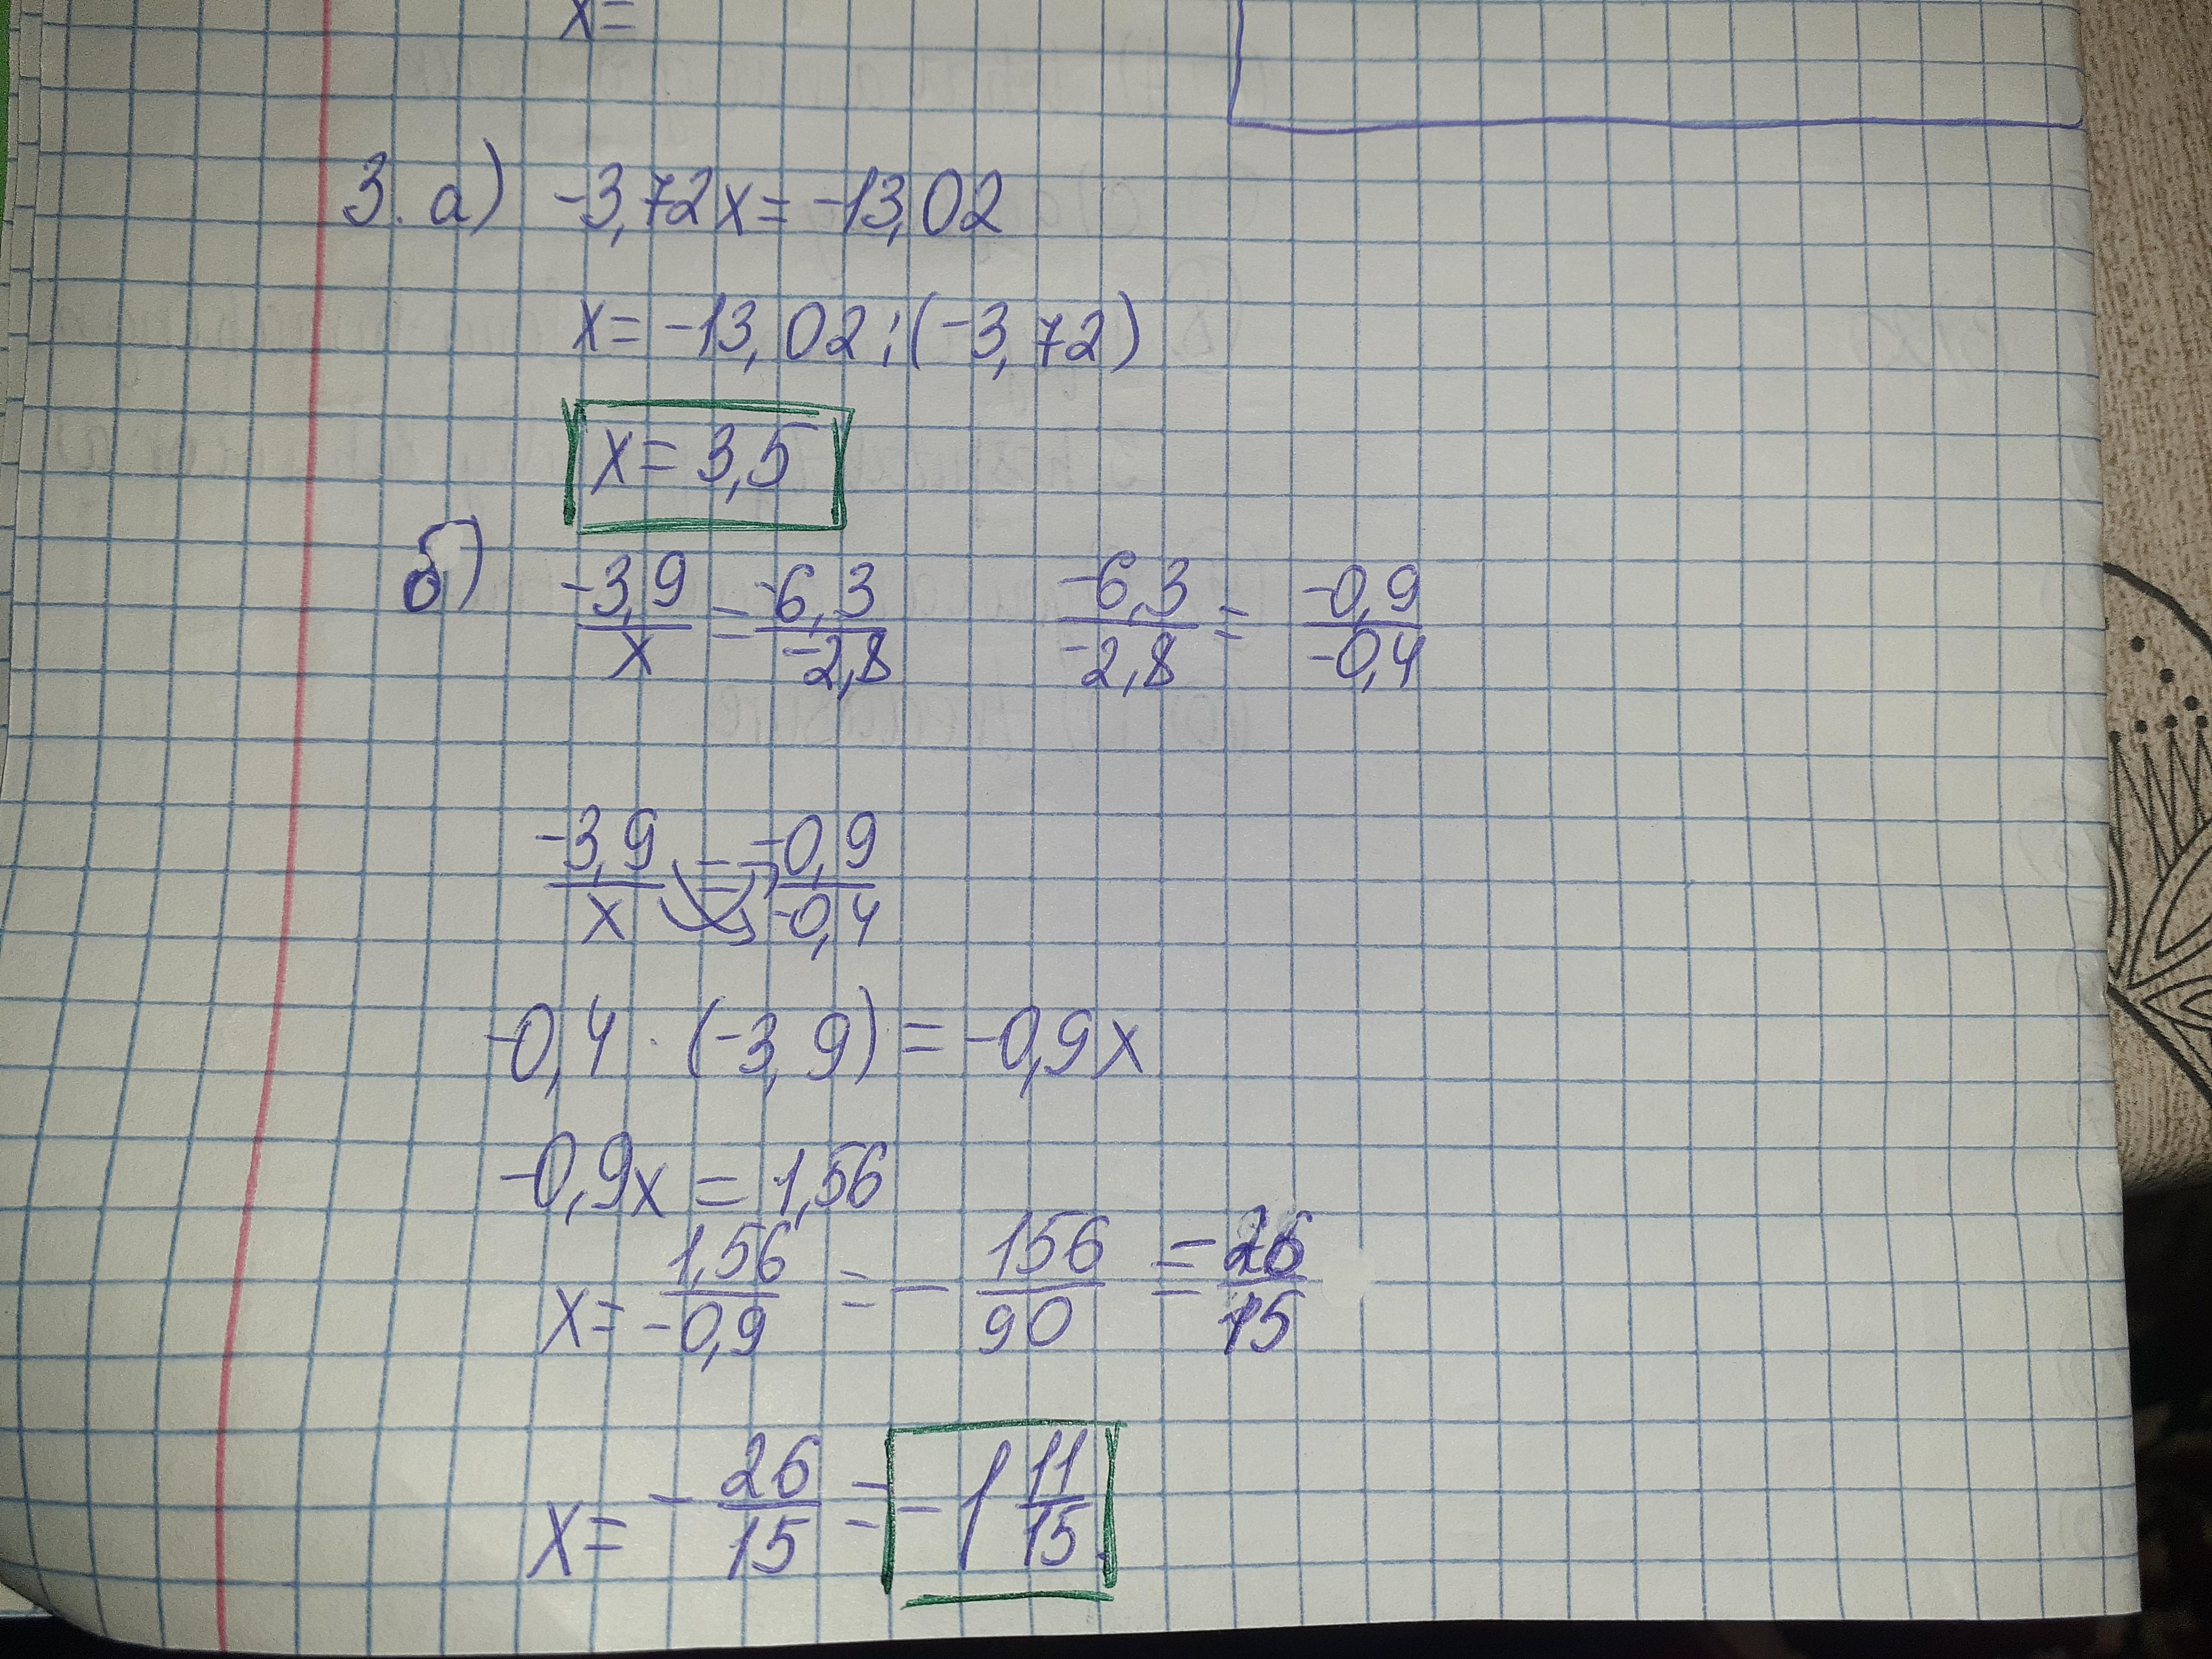 x=
3. а) -3,72x = -13,02
x = -13,02 : (-3,72)
x = 3,5
б) -3,9/x = -6,3/-2,8 -6,3/-2,8 = -0,9/-0,4
-3,9/x = -0,9/-0,4
-0,4 · (-3,9) = -0,9x
-0,9x = 1,56
x = 1,56/-0,9 = - 156/90 = -26/15
x = - 26/15 = -1 11/15.